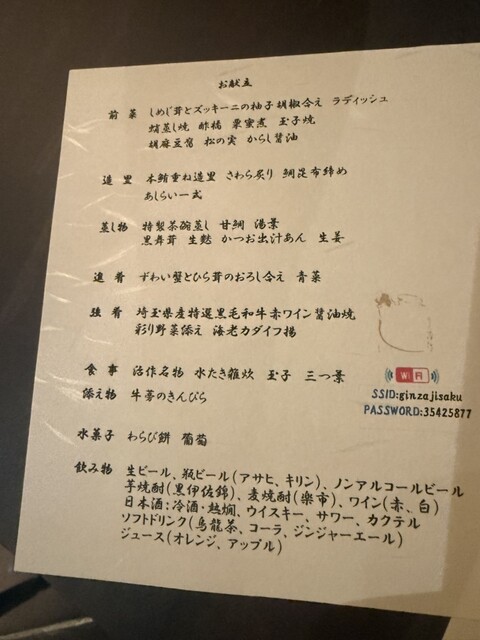 お献立
前菜 しめじ茸とズッキーニの柚子胡椒合え ラディッシュ
蛸蒸し焼 酢橘 栗蜜煮 玉子焼
胡麻豆富 松の実 からし醤油
造里 本鮪重ね造里 さわら炙り 鯛昆布締め
あしらい一式
蒸し物 特製茶碗蒸し 甘鯛 湯葉
黒舞茸 生麩 かつお出汁あん 生姜
進肴 ずわい蟹とひら茸のおろし合え 青菜
強肴 埼玉県産特選黒毛和牛赤ワイン醤油焼
彩り野菜添え 海老カダイフ揚
食事 治作名物 水たき雑炊 玉子 三つ葉
添え物 牛蒡のきんぴら
水菓子 わらび餅 葡萄
WiFi
SSID:ginzajisaku
PASSWORD:35425877
飲み物 生ビール、瓶ビール(アサヒ、キリン)、ノンアルコールビール
芋焼酎(黒伊佐錦)、麦焼酎(楽市)、ワイン(赤、白)
日本酒:冷酒・熱燗、ウイスキー、サワー、カクテル
ソフトドリンク(烏龍茶、コーラ、ジンジャーエール)
ジュース(オレンジ、アップル)